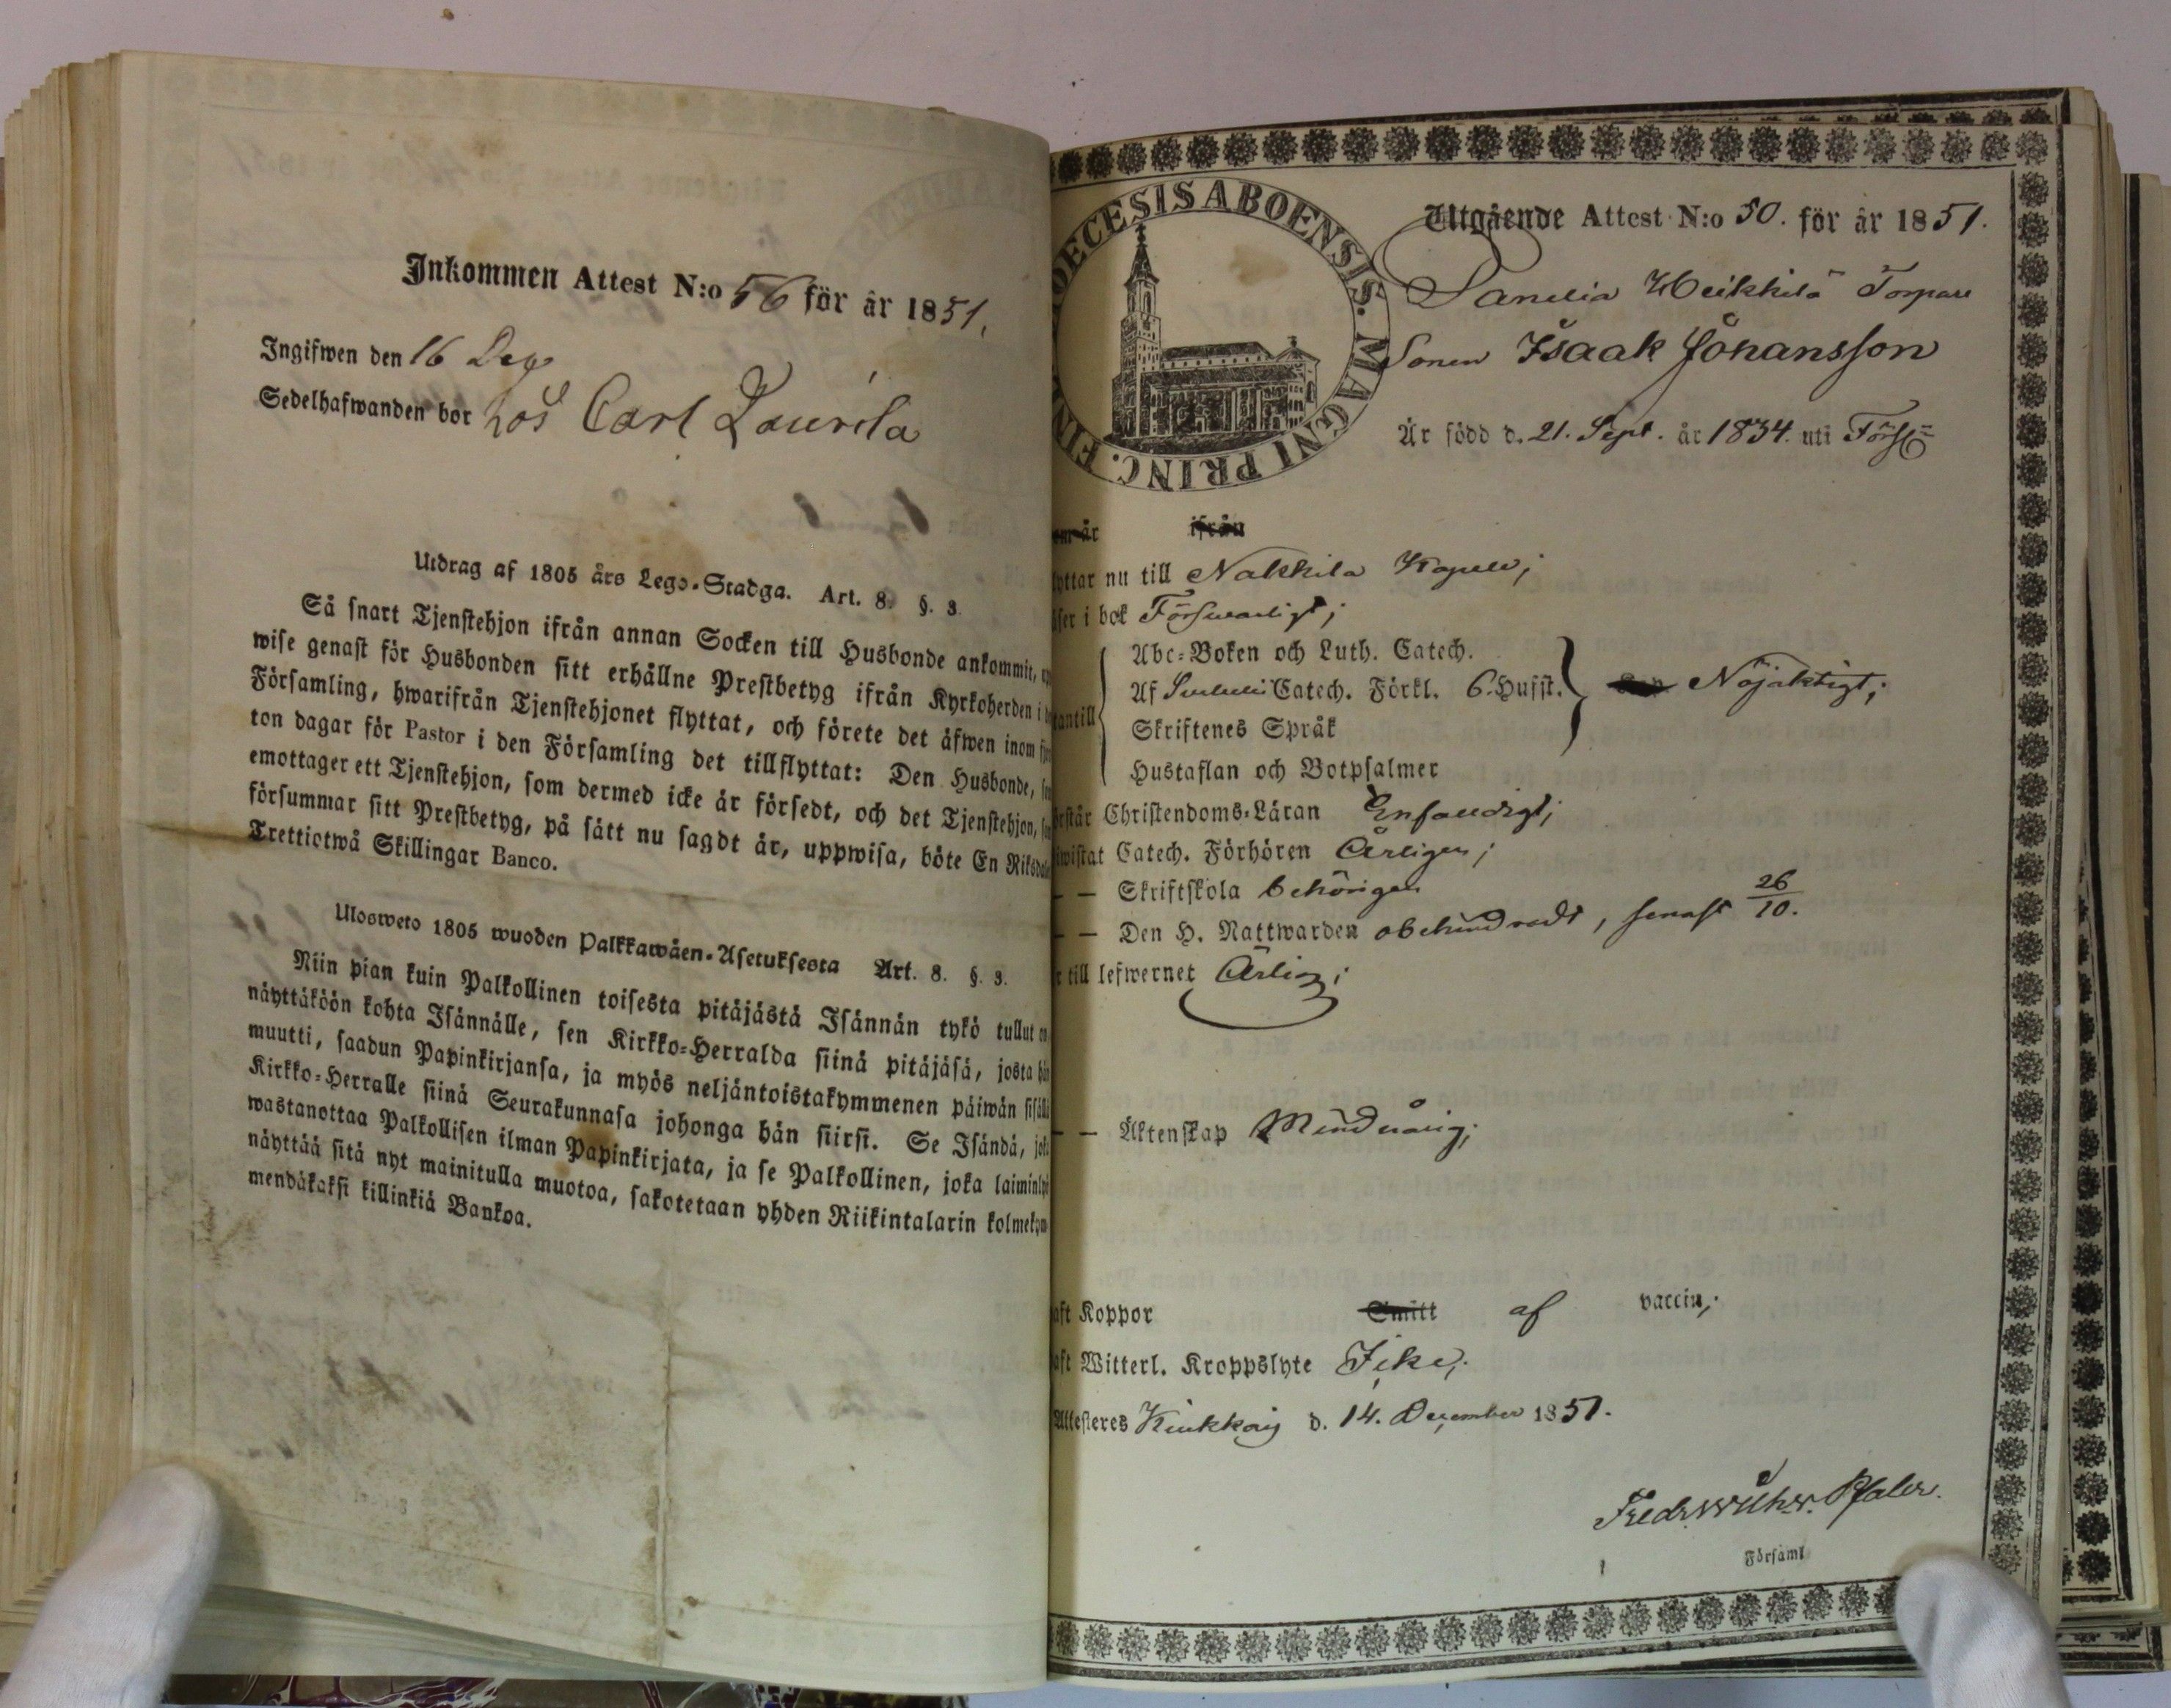 Inkommen Attest N:o 56 för år 1851.
Ingifwen den 16 Dec
Sedelhafwanden bor hos Carl Laurila
Utdrag af 1805 års Lego-Stadga. Art. 8. §. 3.
Så snart Tjenstehjon ifrån annan Socken till Husbonde ankommit,
wise genast för Husbonden sitt erhållne Prestbetyg ifrån Kyrkoherden i
Församling, hwarifrån Tjenstehjonet flyttat, och förete det äfwen inom
ton dagar för Pastor i den Församling det tillflyttat: Den Husbonde,
emottager ett Tjenstehjon, som dermed icke är försedt, och det Tjenstehjon,
försummar sitt Prestbetyg, på sätt nu sagdt är, uppwisa, böte En Riksdal
Trettiotwå Skillingar Banco.
Ulosweto 1805 wuoden Palkkawäen-Asetuksesta Art. 8. §. 3.
Niin pian kuin Palkollinen toisesta pitäjästä Isännän tykö tullut on
näyttäköön kohta Isännälle, sen Kirkko-Herralda siinä pitäjäsä, josta hän
muutti, saadun Papinkirjansa, ja myös neljäntoistakymmenen päiwän sisällä
Kirkko-Herralle siinä Seurakunnasa johonga hän siirsi. Se Isändä, joka
wastanottaa Palkollisen ilman Papinkirjata, ja se Palkollinen, joka laiminlyö
näyttää sitä nyt mainitulla muotoa, sakotetaan yhden Riikintalarin kolmekym
mendäkaksi killinkiä Bankoa.
DIOECESIS ABOENSIS. MAGNI PRINC. FINL
Utgående Attest N:o 50. för år 1851.
Heikkilä Torpare
Sonen Isaak Johansson
Är född d. 21. Sept. år 1834. uti Förs
om är ifrån
lyttar nu till Nakkila Kapell;
äser i bok Förswarligt;
Abc-Boken och Luth. Catech.
Af Catech. Förkl. 6. Husst. Nöjaktigt;
utantill
Skriftenes Språk
Hustaflan och Botpsalmer
örstår Christendoms-Läran Enfaldigt;
iwistat Catech. Förhören Årligen;
— — Skriftskola behörigen
— — Den H. Nattwarden obehindradt, senast 26/10.
r till lefwernet Ärlig;
— — Äktenskap Mindårig;
aft Koppor Smitt af vaccin;
aft Witterl. Kroppslyte Icke;
Attesteres Kiukkais d. 14. December 1851.
Fredr. Wilh. Pfaler.
Församl